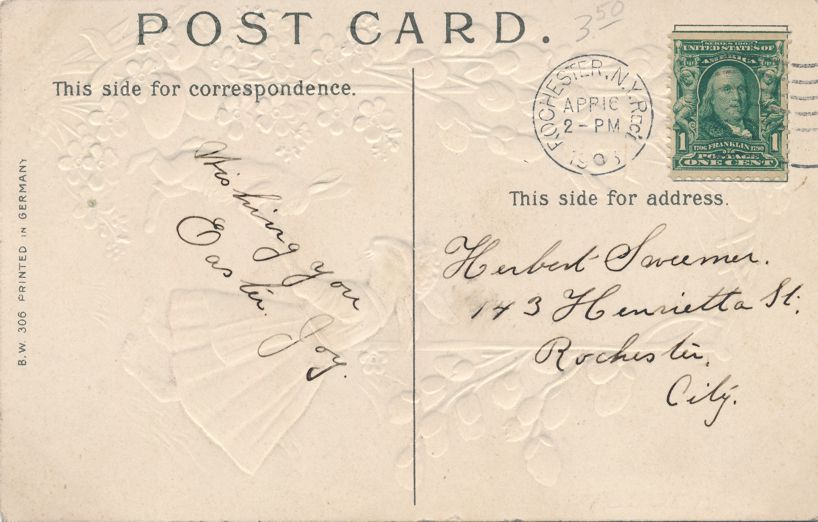 POST CARD.
3.50
This side for correspondence.
ROCHESTER, N.Y. REC'D
APR 16
2 - PM
SERIES 1902
UNITED STATES OF
AMERICA
1 1706 FRANKLIN 1790 1
POSTAGE
ONE CENT
This side for address.
Wishing you
Easter Joy.
Herbert Sweemer.
143 Henrietta St.
Rochester,
City.
B.W. 306 PRINTED IN GERMANY